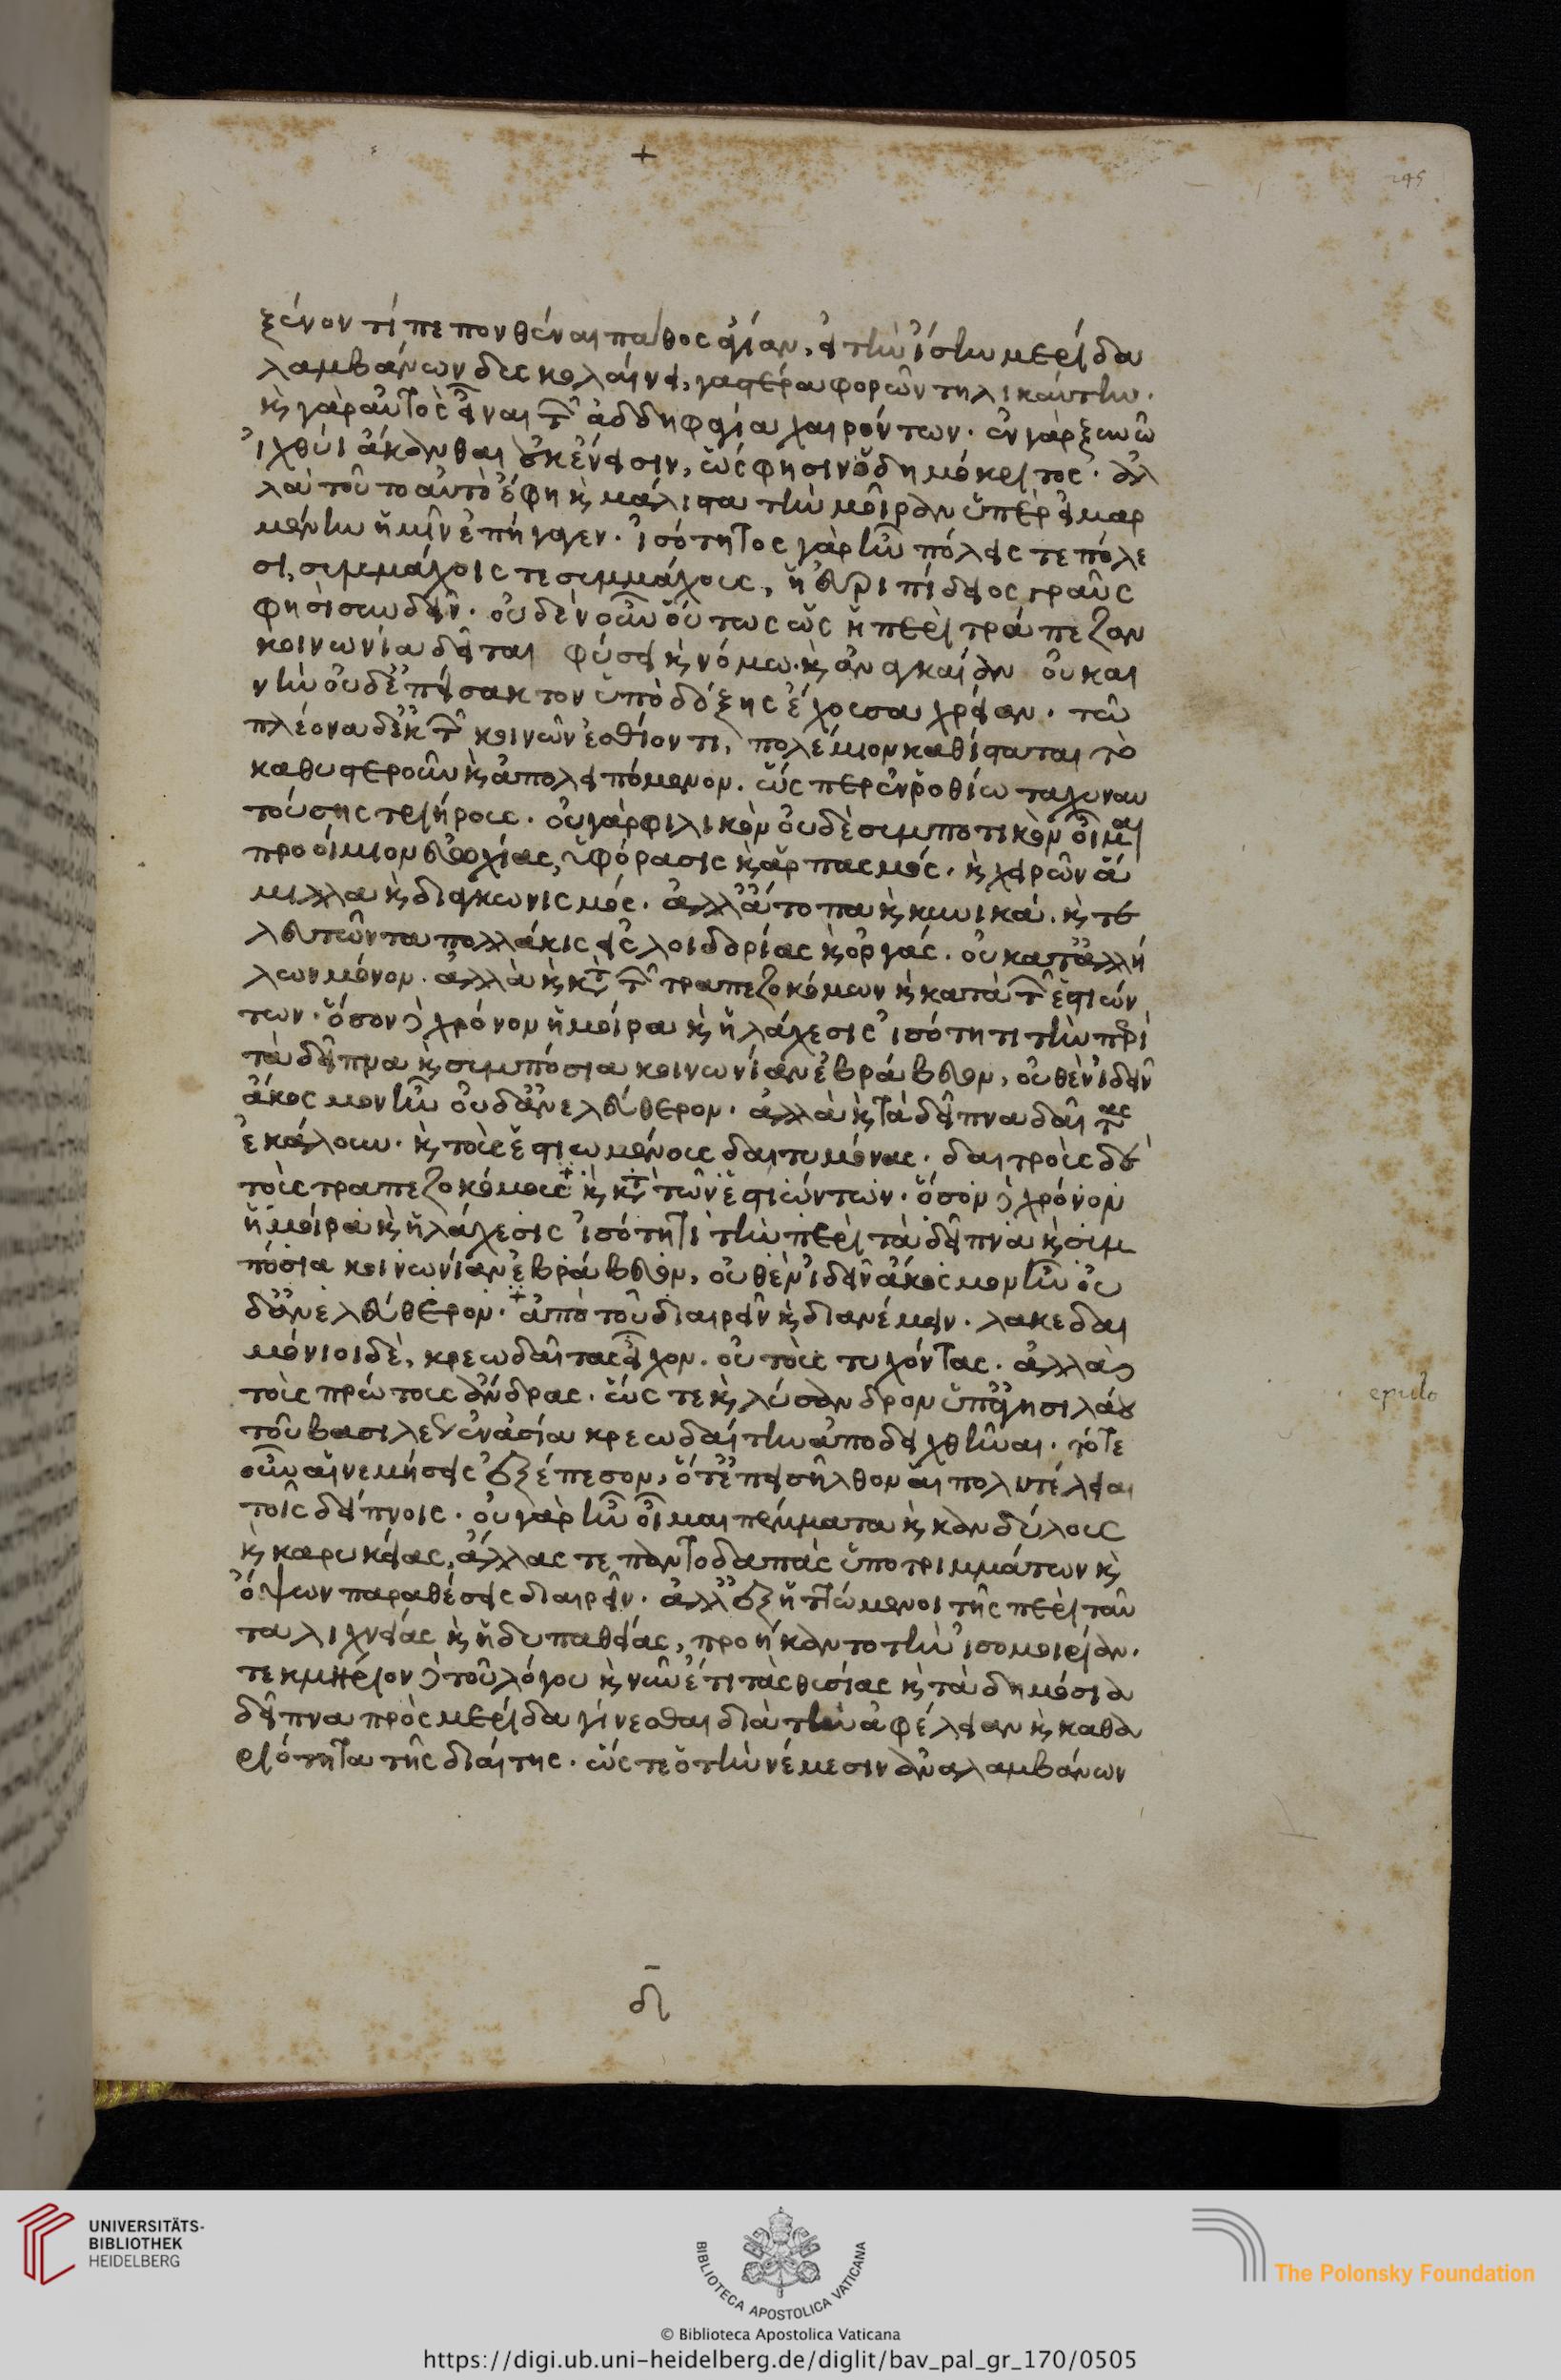 ξένον τί πεπονθέναι πάθος ἀγίαν, εἰ τὴν ἴσην μερίδα
λαμβάνων δυσκολαίνει, γαστέρα φορῶν τηλικαύτην.
κ̀ γὰρ αὐτὸς εἶναι τῶν ἀδδηφαγία χαιρόντων. ἐν γὰρ ξυνῶ
ἰχθύι ἄκανθαι οὐκ ἔνεισιν, ὥς φησιν ὁ δημόκριτος. ἀλ
λὰ τοῦτο αὐτὸ ἔφη κ̀ μάλιστα τὴν μοῖραν ὑπὲρ εἱμαρ
μένην ἡμῖν ἐπήγαγεν. ἰσότητος γὰρ ἣν πόλεις τε πόλε
σι, συμμάχοις τε συμμάχους, ἡ εὐριπίδειος γραῦς
φησὶ συνδεῖν. οὐδὲν οὖν οὕτως ὡς ἡ περὶ τράπεζαν
κοινωνία δεῖται φύσει κ̀ νόμω. κ̀ ἀναγκαίαν οὐ και
νὴν οὐδ' ἐπείσακτον ὑπὸ δόξης ἔχουσα χρείαν. τῶ
πλέονα δ' ἐκ τῶν κοινῶν ἐσθίοντι, πολέμιον καθίσταται τὸ
καθυστεροῦν κ̀ ἀπολειπόμενον. ὥσπερ ἐν ῥοθίω ταχυναυ
τούσης τριήρους. οὐ γὰρ φιλικὸν οὐδὲ συμποτικὸν οἶμαι
προοίμιον εὐωχίας, ὑφόρασις κ̀ ἁρπασμός. κ̀ χειρῶν ἅ
μιλλα κ̀ διαγκωνισμός. ἀλλ' ἄτοπα κ̀ κυνικά. κ̀ τε
λευτῶντα πολλάκις εἰς λοιδορίας κ̀ ὀργάς. οὐ κατ' ἀλλή
λων μόνον. ἀλλὰ κ̀ κτ̀ τῶν τραπεζοκόμων κ̀ κατὰ τῶν ἑστιών
των. ὅσον δὲ χρόνον ἡ μοίρα κ̀ ἡ λάχεσις ἰσότητι τὴν περὶ
τὰ δεῖπνα κ̀ συμπόσια κοινωνίαν ἐβράβευον, οὐθὲν ἰδεῖν
ἄκοσμον ἦν οὐδ' ἀνελεύθερον. ἀλλὰ κ̀ τὰ δεῖπνα δαῖτας
ἐκάλουν. κ̀ τοὺς ἑστιωμένους δαιτυμόνας. δαιτροὺς δὲ
τοὺς τραπεζοκόμους κ̀ κτ̀ τῶν ἑστιώντων. ὅσον δὲ χρόνον
ἡ μοίρα κ̀ ἡ λάχεσις ἰσότητι τὴν περὶ τὰ δεῖπνα κ̀ συμ
πόσια κοινωνίαν ἐβράβευον, οὐθὲν ἰδεῖν ἄκοσμον ἦν οὐ
δ' ἀνελεύθερον. ἀπὸ τοῦ διαιρεῖν κ̀ διανέμειν. λακεδαι
μόνιοι δὲ, κρεωδαίτας εἶχον. οὐ τοὺς τυχόντας. ἀλλὰ
τοὺς πρώτους ἄνδρας. ὥστε κ̀ λύσανδρον ὑπ' ἀγησιλάου
τοῦ βασιλέως ἐν ἀσία κρεωδαίτην ἀποδειχθῆναι. τότε
οὖν αἱ νεμήσεις ἐξέπεσον, ὅτ' ἐπεισῆλθον αἱ πολυτέλειαι
τοῖς δείπνοις. οὐ γὰρ ἦν οἶμαι πέμματα κ̀ κανδύλους
κ̀ καρυκείας, ἄλλας τε παντοδαπὰς ὑποτριμμάτων κ̀
ὄψων παραθέσεις διαιρεῖν. ἀλλ' ἐξηττώμενοι τῆς περὶ ταῦ
τα λιχνείας κ̀ ἡδυπαθείας, προήκαντο τὴν ἰσομοιρίαν.
τεκμήριον δὲ τοῦ λόγου κ̀ νῦν ἔτι τὰς θυσίας κ̀ τὰ δημόσια
δεῖπνα πρὸς μερίδα γίνεσθαι διὰ τὴν ἀφέλειαν κ̀ καθα
ριότητα τῆς διαίτης. ὥστε ὁ τὴν νέμεσιν ἀναλαμβάνων
epulo
UNIVERSITÄTS-
BIBLIOTHEK
HEIDELBERG
BIBLIOTECA APOSTOLICA VATICANA
The Polonsky Foundation
© Biblioteca Apostolica Vaticana
https://digi.ub.uni-heidelberg.de/diglit/bav_pal_gr_170/0505